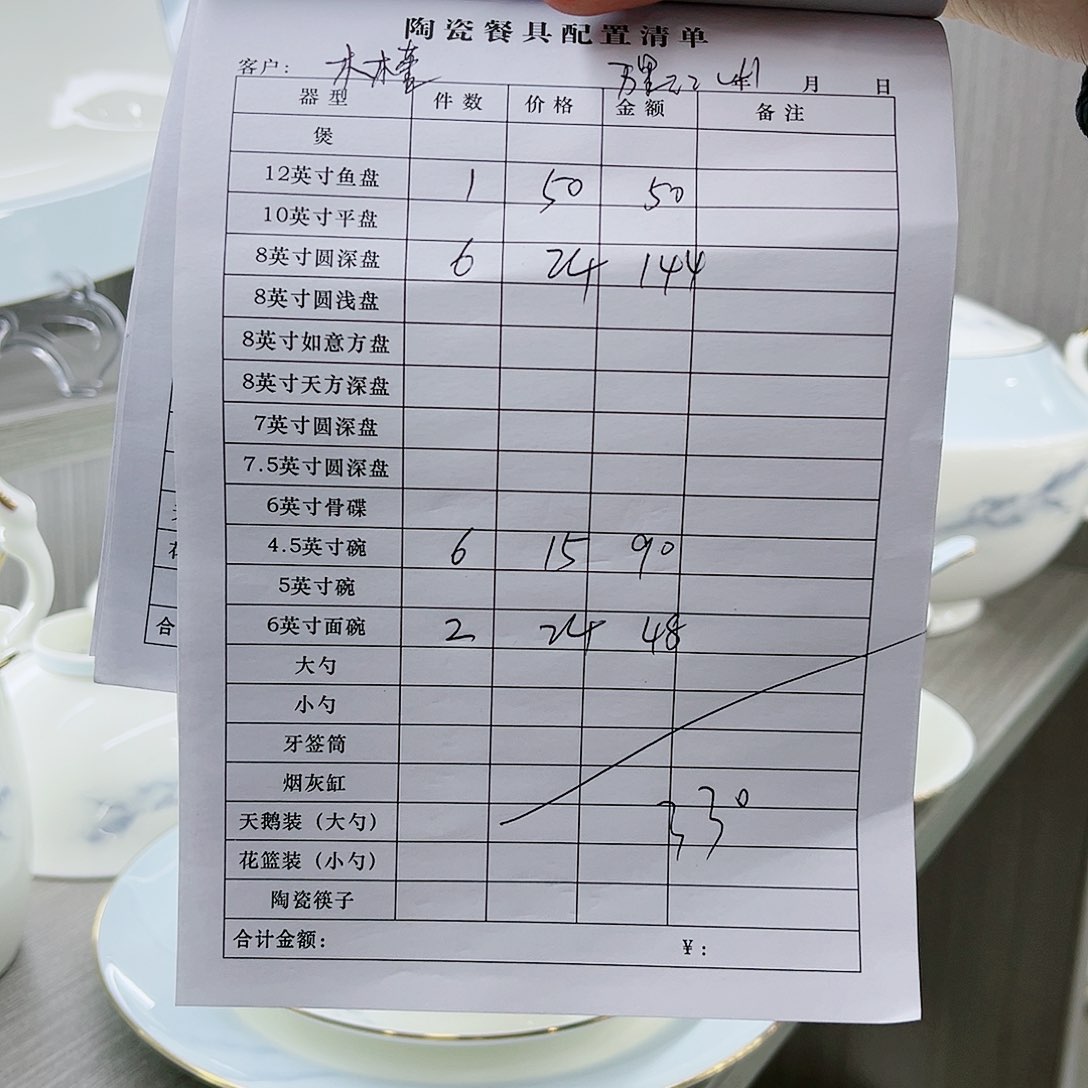 陶瓷餐具配置清单
客户: 木木 年 月 日
器型 件数 价格 金额 备注
煲
12英寸鱼盘 1 50 50
10英寸平盘
8英寸圆深盘 6 24 144
8英寸圆浅盘
8英寸如意方盘
8英寸天方深盘
7英寸圆深盘
7.5英寸圆深盘
6英寸骨碟
4.5英寸碗 6 15 90
5英寸碗
6英寸面碗 2 24 48
大勺
小勺
牙签筒
烟灰缸
天鹅装（大勺） 330
花篮装（小勺）
陶瓷筷子
合计金额: ¥:
合